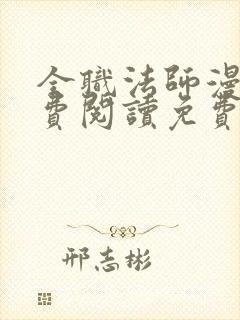 全職法師漫
費閱讀免費
邢志彬